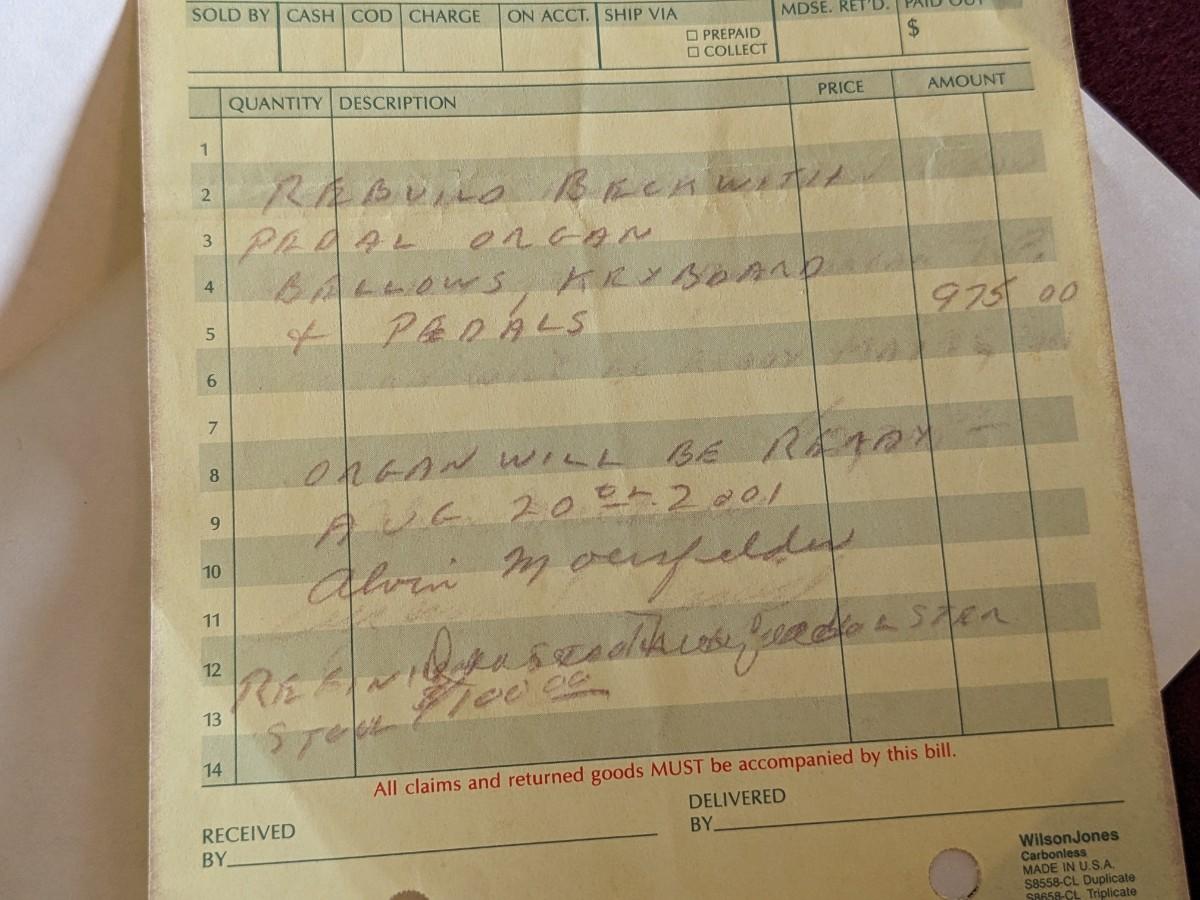 SOLD BY CASH COD CHARGE ON ACCT. SHIP VIA MDSE. RET'D. PAID OUT
☐ PREPAID
☐ COLLECT
$
QUANTITY DESCRIPTION PRICE AMOUNT
1
2 REBUILD BECKWITH
3 PEDAL ORGAN
4 BELLOWS, KEYBOARD
5 & PEDALS 975 00
6
7
8 ORGAN WILL BE READY
9 AUG 20th 2001
10 Alvin
11
12 REFINISH
13 STOOL $100 00
14
All claims and returned goods MUST be accompanied by this bill.
RECEIVED BY
DELIVERED BY
WilsonJones
Carbonless
MADE IN U.S.A.
S8558-CL Duplicate
S8658-CL Triplicate